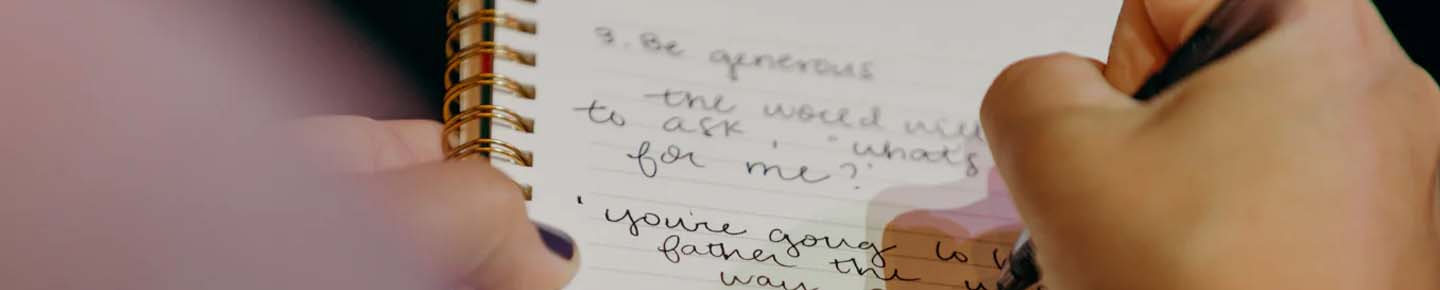 3. Be generous
the world will
to ask, "what's
for me?"
"you're going to
father the
way